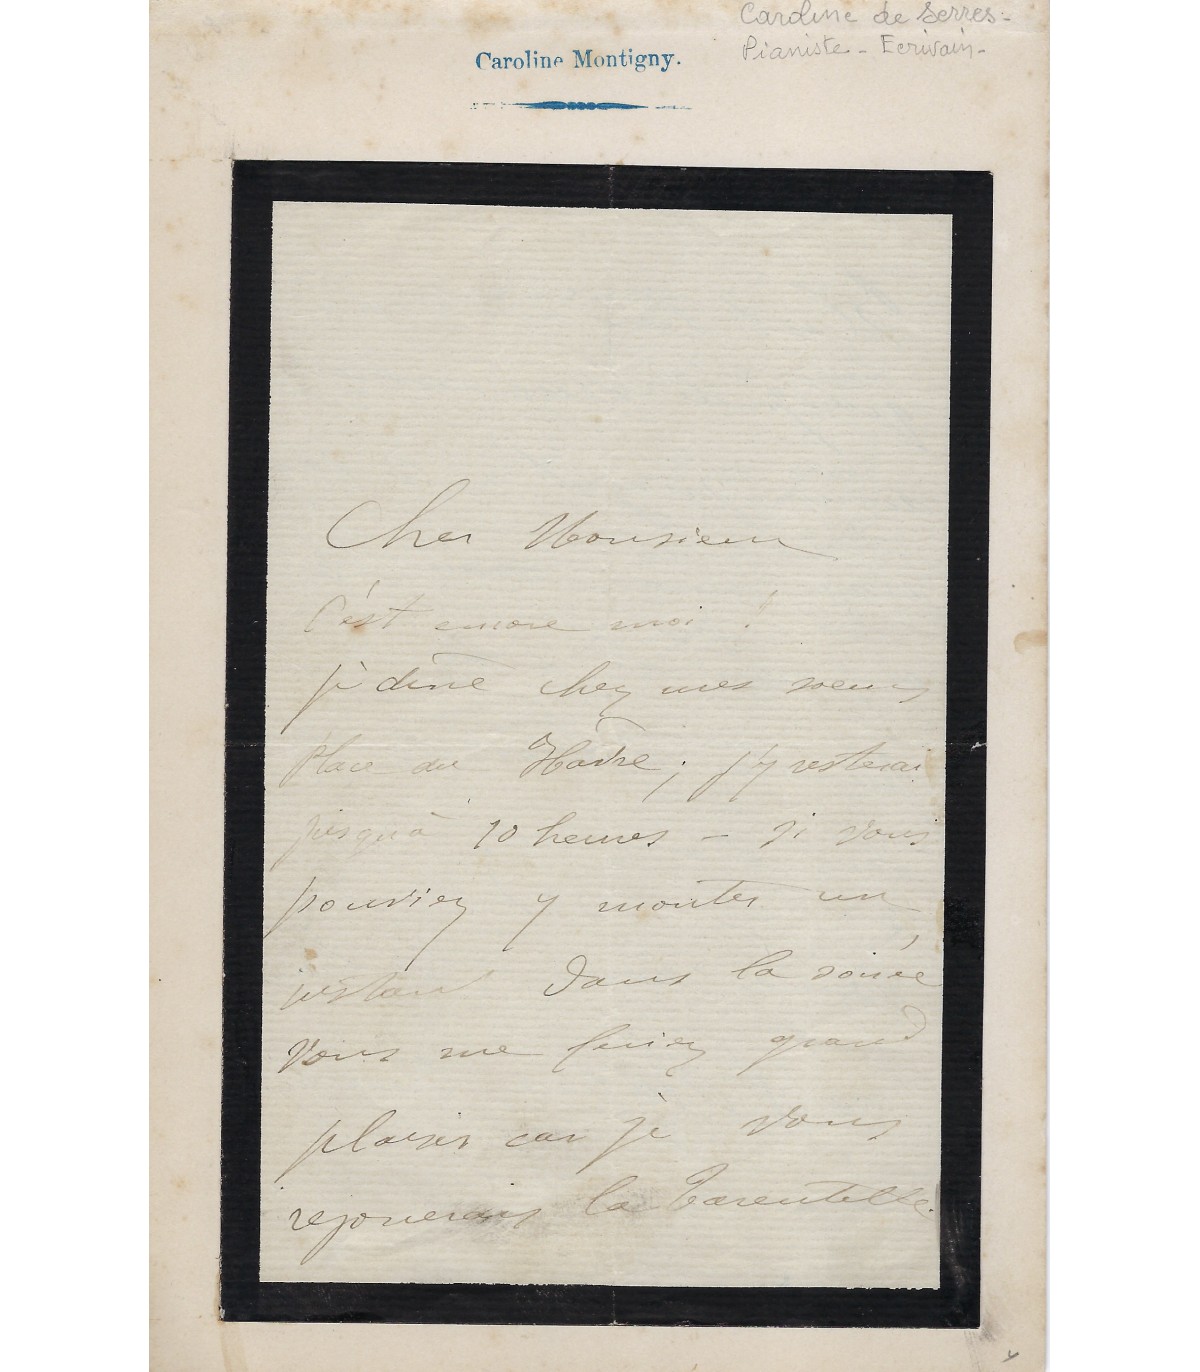 Caroline de Serres -
Pianiste - Ecrivain -
Caroline Montigny.
Cher Monsieur
C'est encore moi !
je dîne chez mes soeurs
Place du Hâvre ; j'y resterai
jusqu'à 10 heures - si vous
pouviez y monter un
instant dans la soirée
vous me feriez grand
plaisir car je vous
rejouerais la Tarentelle.